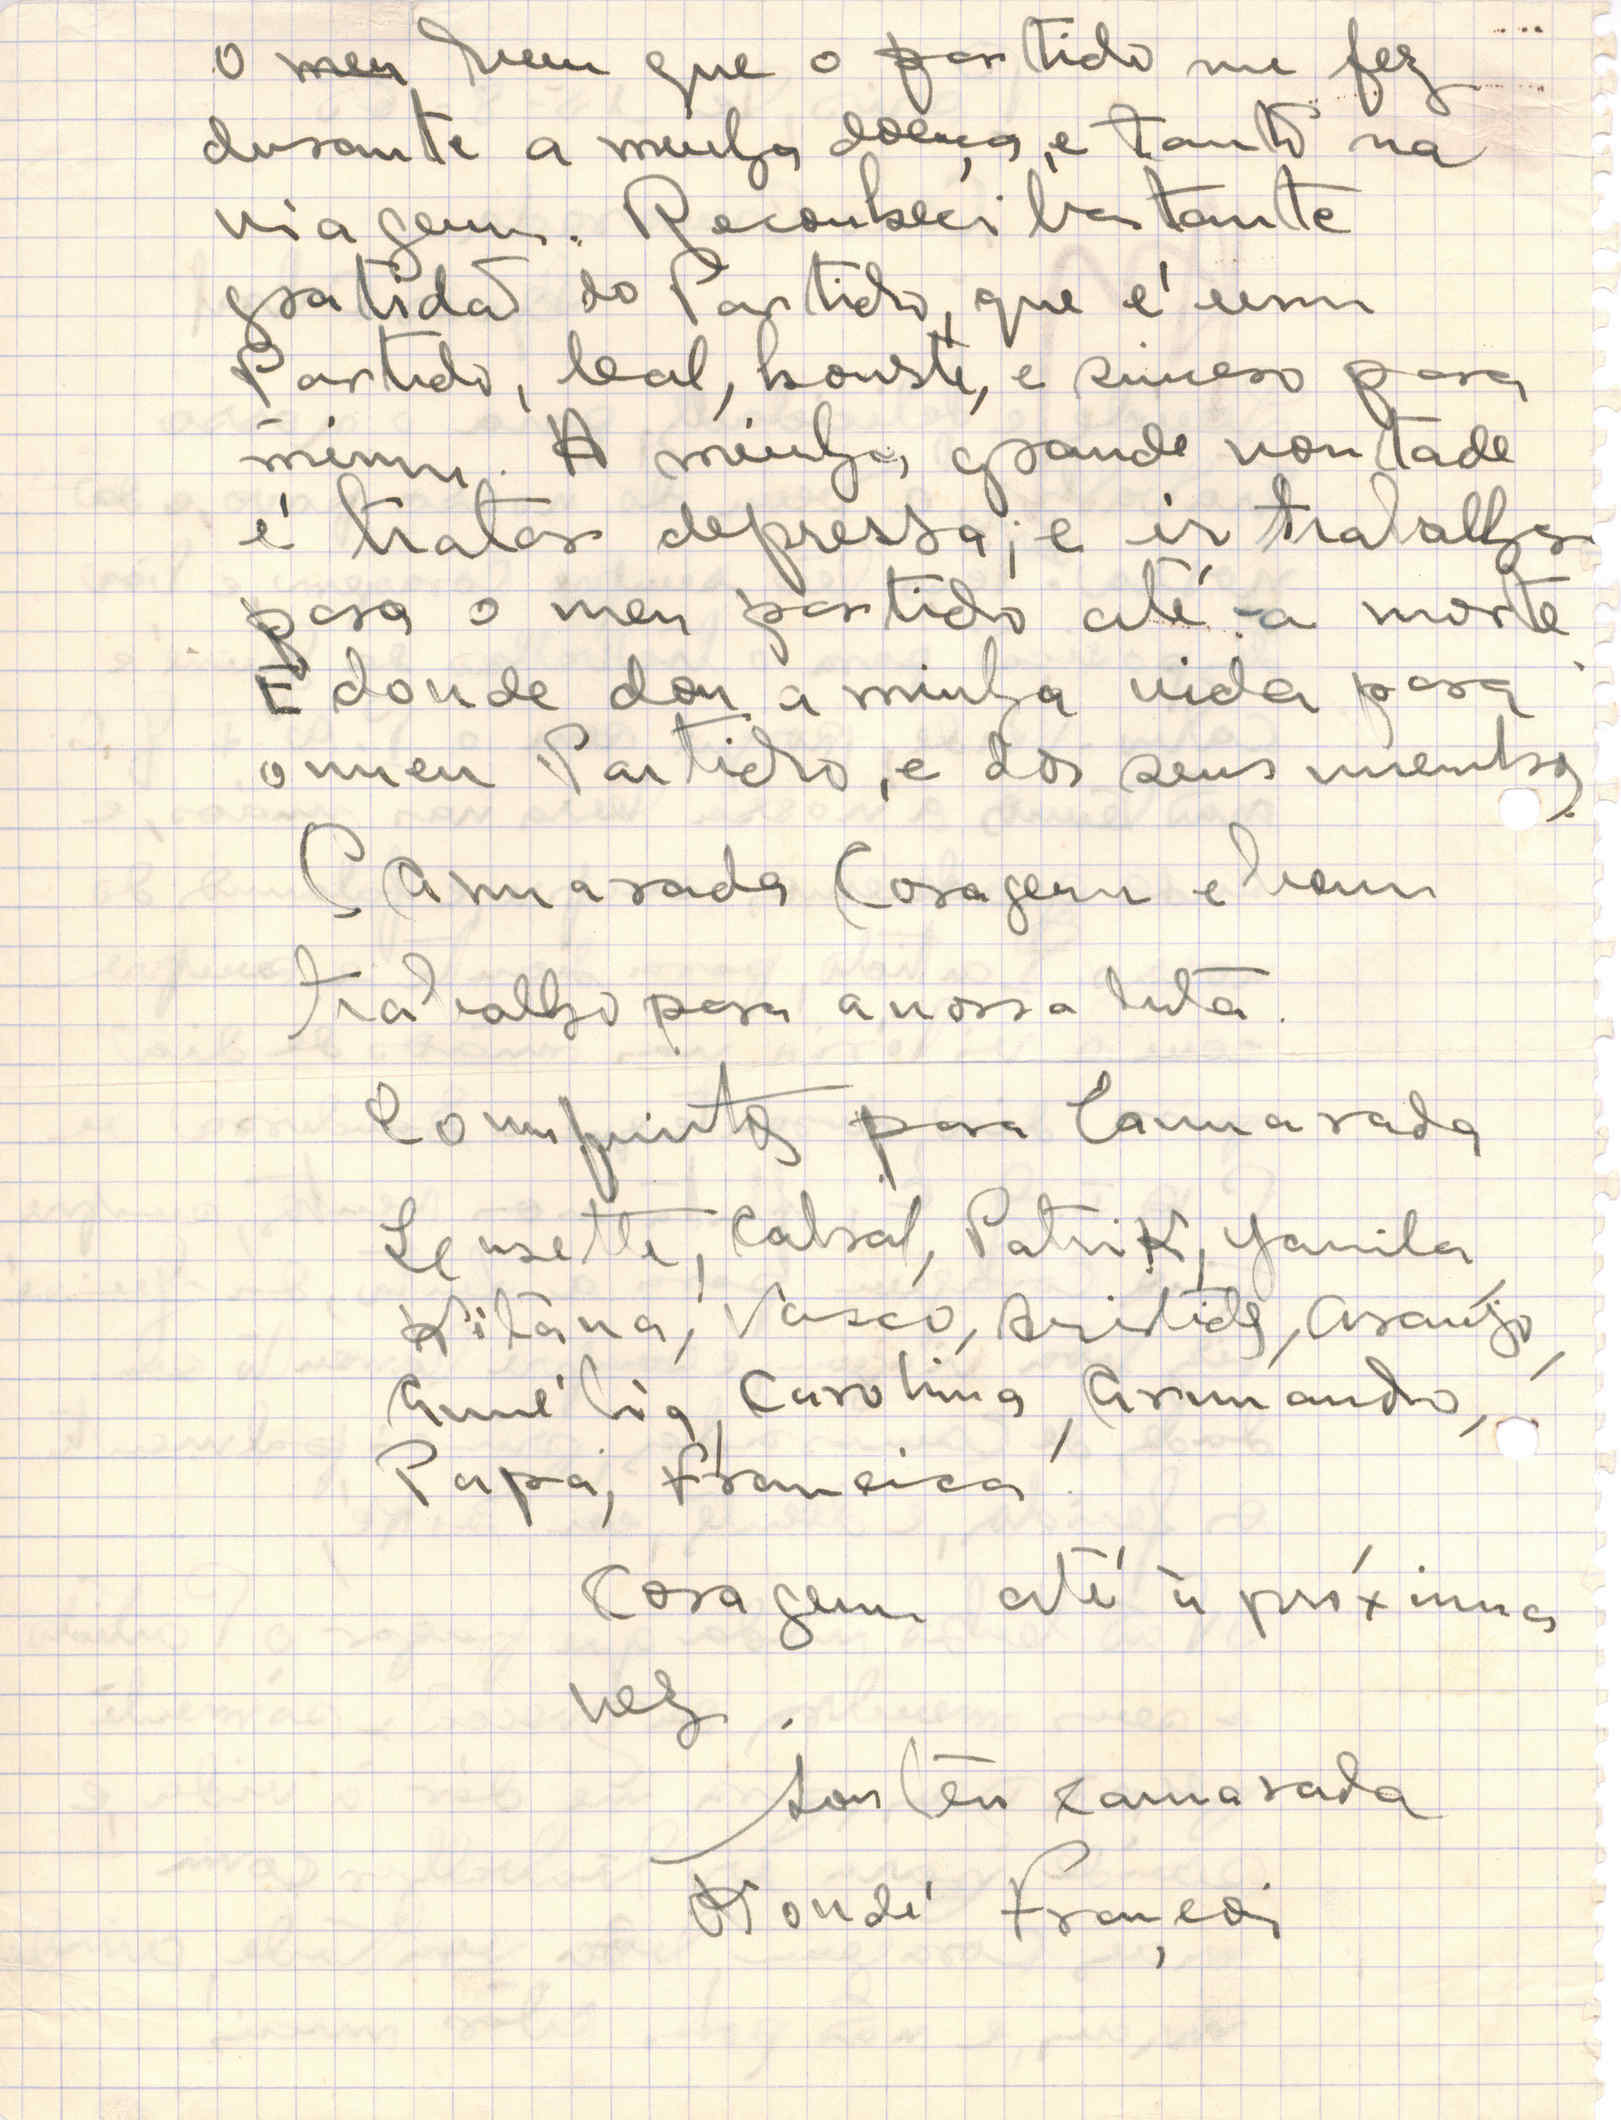 o meu bem que o partido me fez
durante a minha doença, e tanto na
viagem. Reconheci bastante
gratidão do Partido, que é um
Partido, leal, honste, e sincero para
mimm. A minha grande vontade
é tratar depressa; e ir trabalhar
para o meu partido até a morte
E donde dou a minha vida para
o meu Partido, e dos seus membros.
Camarada Coragem e bom
trabalho para a nossa luta.
Comprimentos para Camarada
Lensette, Cabral, Patrik, Yamila,
Kilana, Vasco, Aristides, Araujo,
Amélia, Carolina, Armando,
Papa, Francisca.
Coragem até à próxima
vez.
camarada
Kondé Françoi